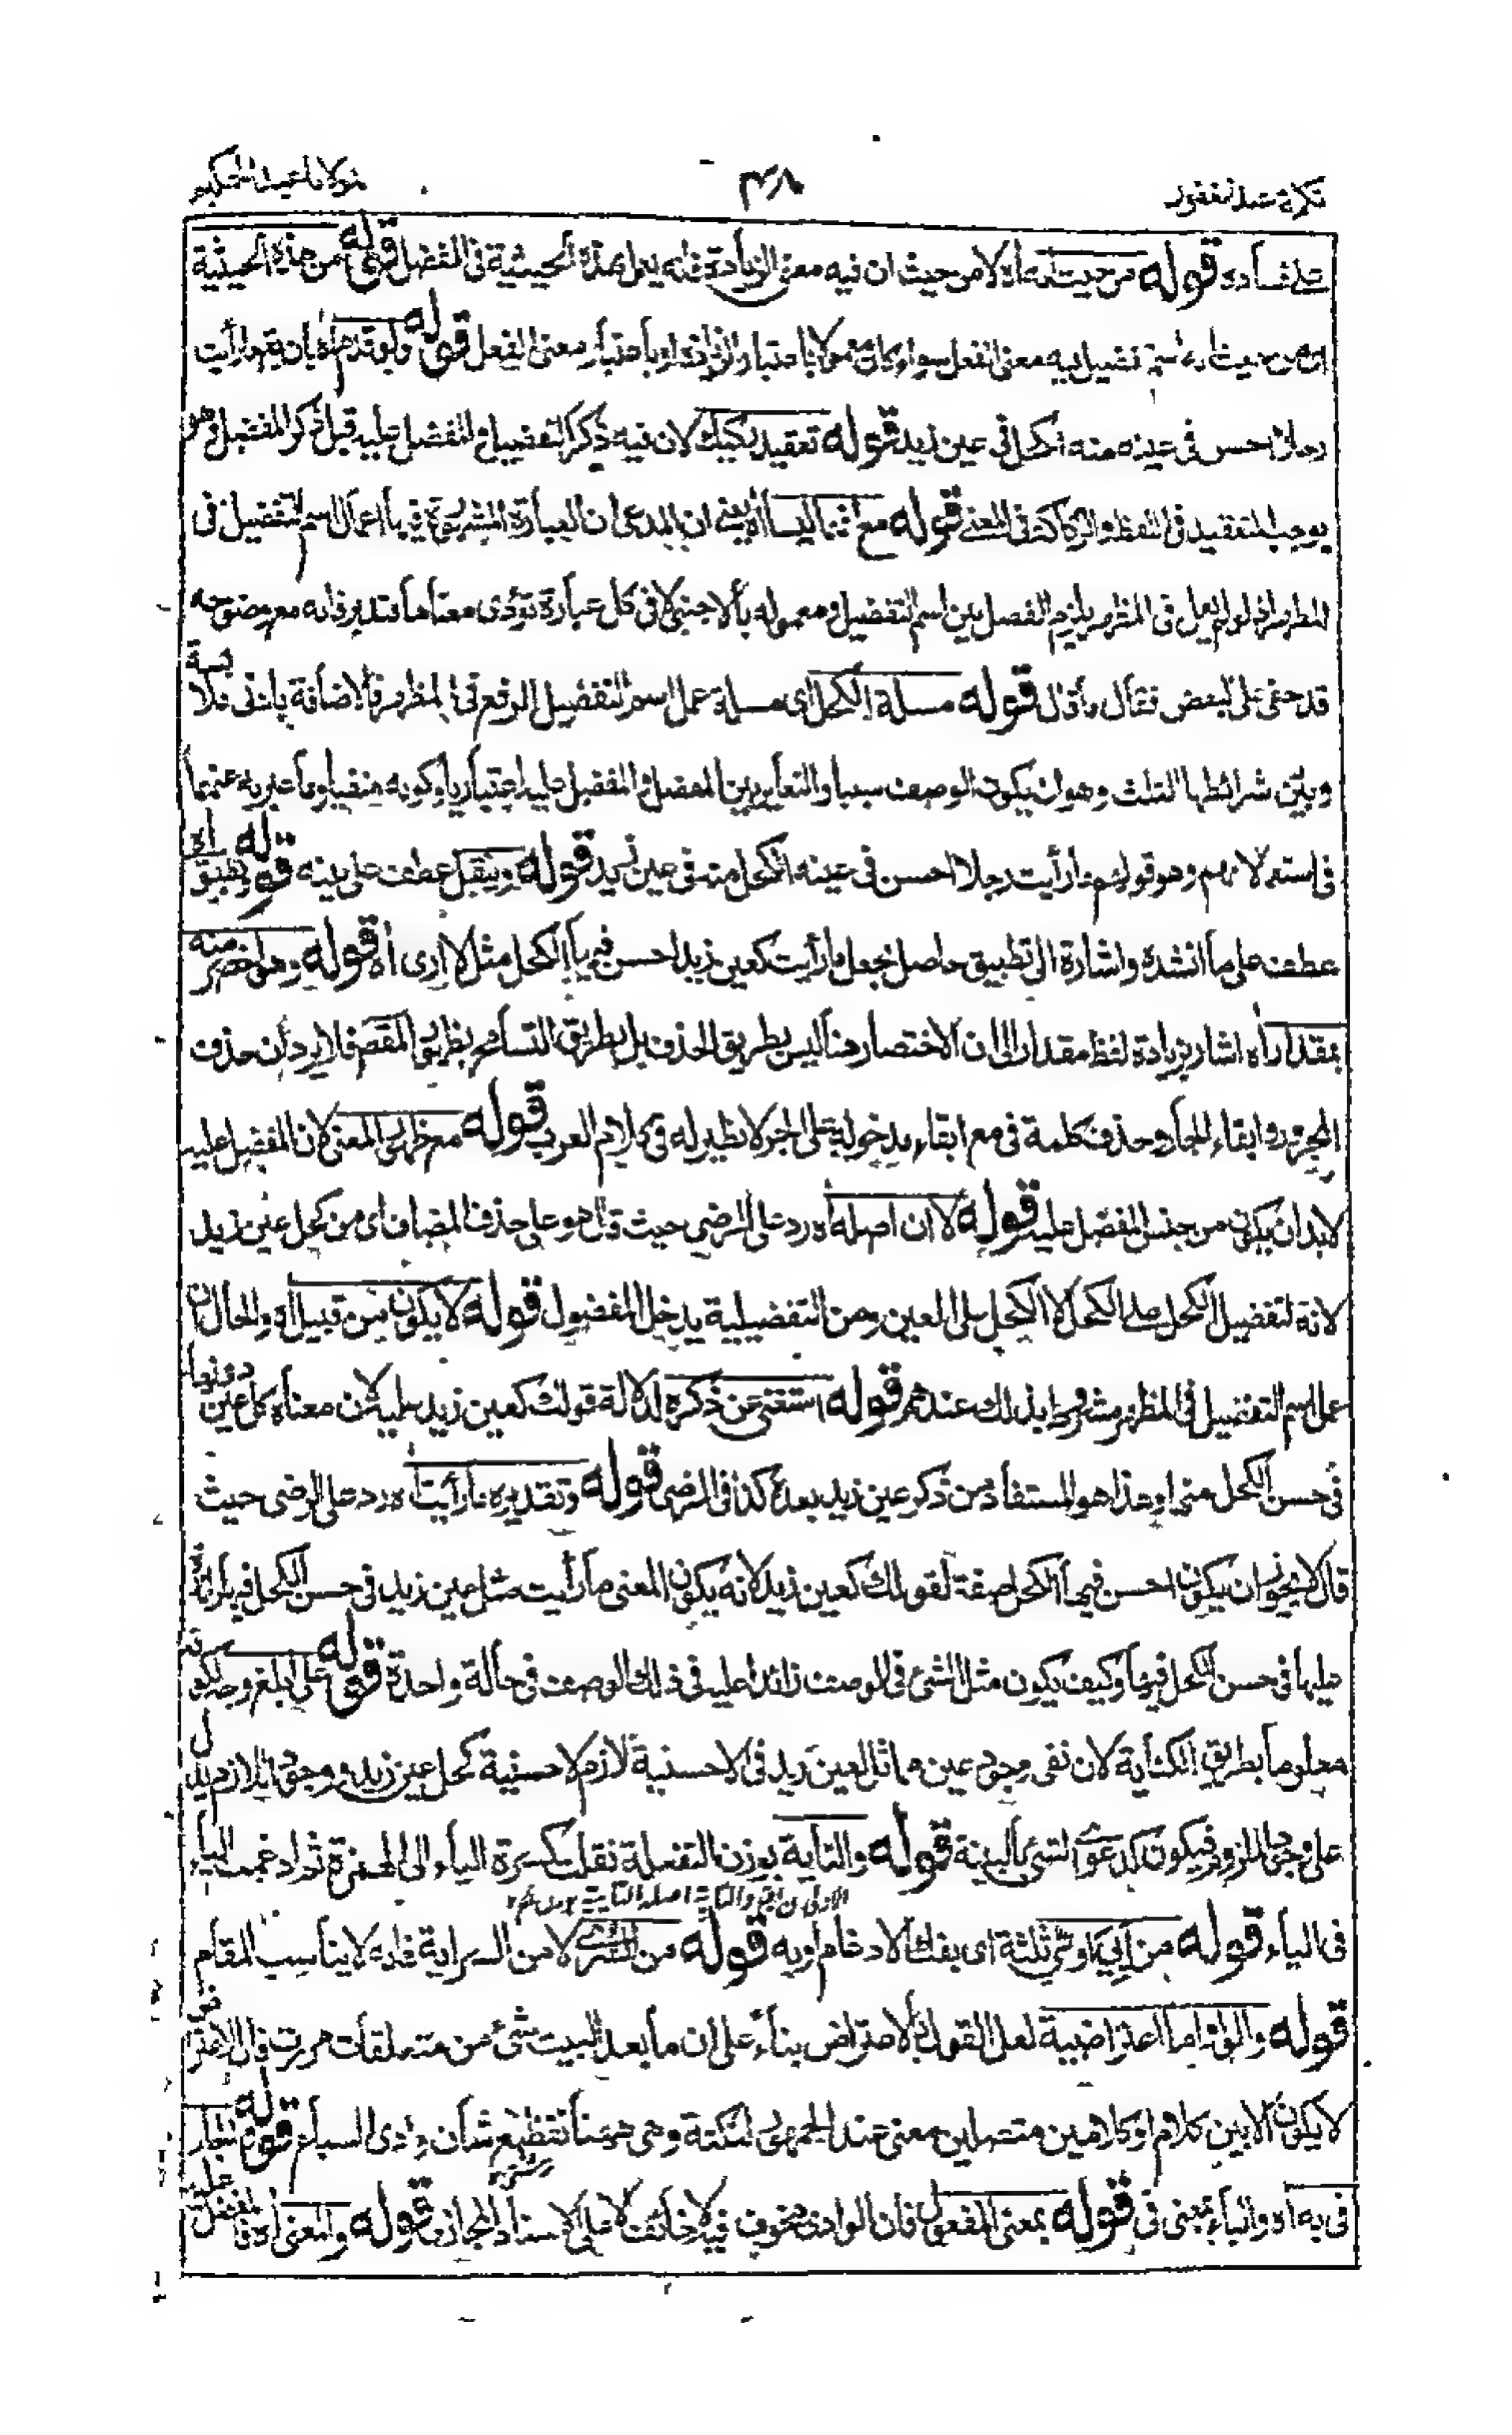 تكملة عبد الغفور ٣٤٨ مولانا عبد الحكيم
على فساده قوله من حيث انه اه لا من حيث ان فيه معنى الزيادة فانه يعمل بهذه الحيثية فى المفضل قوله من هذه الحيثية
اى من حيث انه اسم تفضيل فيه معنى الفعل سواء كان معمولا باعتبار الزيادة او باعتبار معنى الفعل قوله ولو قدم اه بان يقال ما رأيت
رجلا احسن فى عينه منه الكحل فى عين زيد قوله تعقيد ركيك لان فيه ذكر التفضيل والمفضل عليه قبل ذكر المفضل وهو
يوجب التعقيد فى اللفظ والركاكة فى المعنى قوله مع انها ليس اه يعنى ان المدعى ان العبارة المشهورة فيها اعمال اسم التفضيل فى
المظهر اذ لو لم يعمل فى المظهر يلزم الفصل بين اسم التفضيل ومعموله بالاجنبى لا فى كل عبارة تؤدى معناها فتدبر فانه مع وضوحه
قد خفى على البعض فقال ما قال قوله مسئلة الكحل اى مسئلة عمل اسم التفضيل الرفع فى المظهر فالاضافة بادنى ملابسة
وبين شرائطها الثلث وهو ان يكون الوصف سببيا والتغاير بين المفضل والمفضل عليه اعتباريا وكونه منفيا وما عبر به عنها
فى استعمالاتهم وهو قولهم ما رأيت رجلا احسن فى عينه الكحل منه فى عين زيد قوله وينقل عطف على بينه قوله وتطبيق اه
عطف على ما انشده واشارة الى تطبيق حاصل بجعل ما رأيت كعين زيد احسن فيها الكحل مثل لا ارى اه قوله وهو اخصر منه
بمقدار اه اشار بزيادة لفظ مقدار الى ان الاختصار هنا ليس بطريق الحذف بل بطريق التسامح بطريق القصر فلا يرد ان حذف
المجرور وابقاء الجار وحذف كلمة فى مع ابقاء مدخوله على الجر لا نظير له فى كلام العرب قوله مع ظهور المعنى لان المفضل عليه
لابد ان يكون من جنس المفضل عليه قوله لا ان اصله اه رد على الرضى حيث قال هو على حذف المضاف اى من كحل عين زيد
لانه لتفضيل الكحل على الكحل لا الكحل على العين ومن التفضيلية يدخل المفضول قوله لا يكون من قبيل اه والحال ان
عمل اسم التفضيل فى المظهر مشروط بذلك عندهم قوله استغنى عن ذكره لدلالة قولك كعين زيد عليه لان معناه كل عين دونها
فى حسن الكحل منها وهذا هو المستفاد من ذكر عين زيد بعده كذا فى الرضى قوله وتقديره ما رأيت اه رد على الرضى حيث
قال لا يجوز ان يكون احسن فيها الكحل صفة لقولك كعين زيد لانه يكون المعنى ما رأيت مثل عين زيد فى حسن الكحل فيها زائدة
عليها فى حسن الكحل فيها وكيف يكون مثل الشئ فى الوصف زائدا عليه فى ذلك الوصف فى حالة واحدة قوله على ابلغ وجه لكونه
معلوما بطريق الكناية لان نفى وجود عين مماثل لعين زيد فى الاحسنية لازم لاحسنية كحل عين زيد ووجود اللازم يدل
على وجود الملزوم فيكون كدعوى الشئ بالبينة قوله والتاية بوزن التفعلة نقلت كسرة الياء الى الهمزة ثم ادغمت الياء
فى الياء قوله من ايى اوتى ثلثة اى بفك الادغام او به قوله من السرى لا من السراية فانه لا يناسب المقام
قوله والواو اما اعتراضية لعل القول بالاعتراض بناء على ان ما بعد البيت شئ من متعلقات مررت فان الاعتراض
لا يكون الا بين كلام او كلامين متصلين معنى عند الجمهور لنكتة وهى ههنا تفظيع شأن وادى السباع قوله فتجار
فى به اه والباء بمعنى فى قوله بمعنى المفعول فان الوادى مخوف فيه لا خائف لا على الاسناد المجازى قوله والمعنى اه فالمفضل عليه